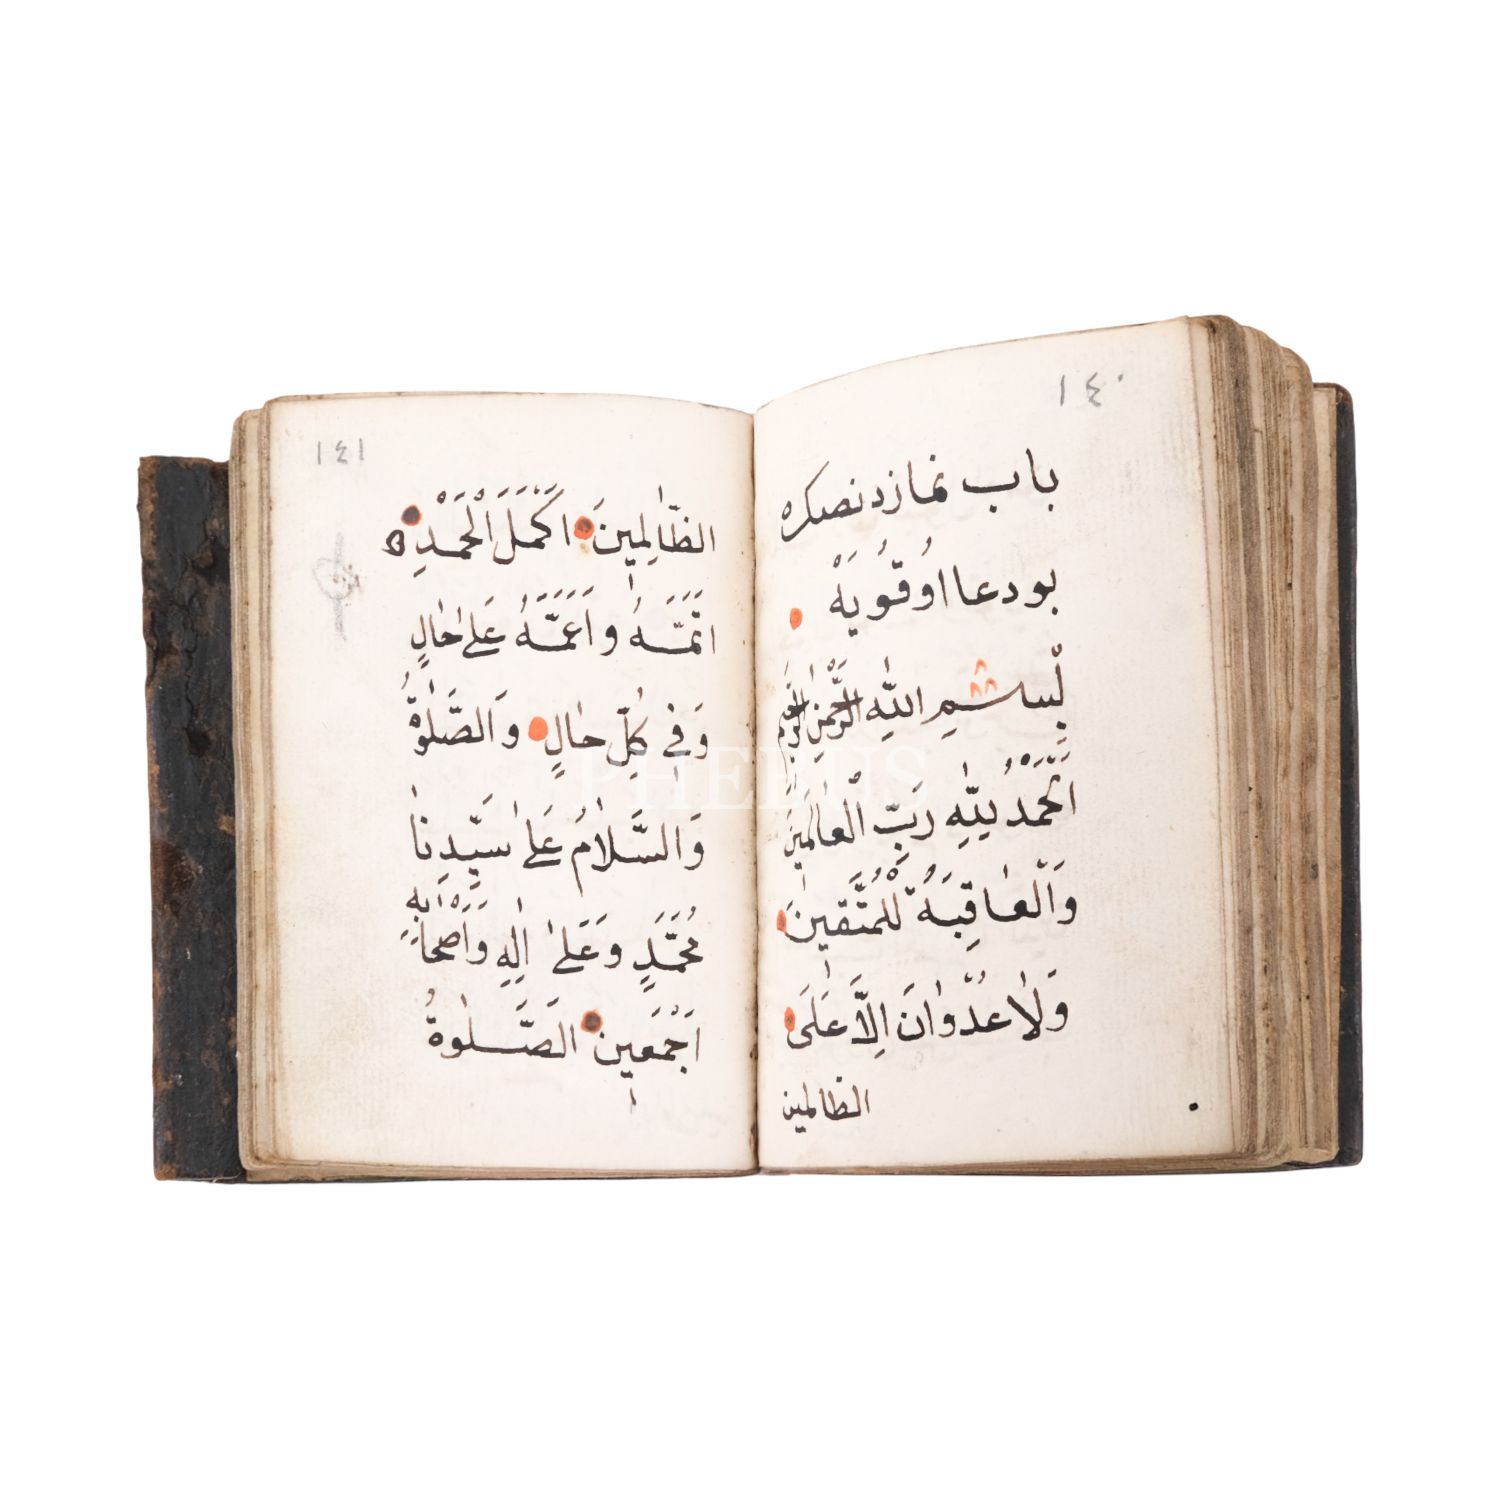 ١٤٠
باب نمازدنصكره
بودعا اوُقُويَهْ
بِسْمِ اللّٰهِ الرَّحْمٰنِ الرَّحِيمِ
اَلْحَمْدُ لِلّٰهِ رَبِّ الْعٰالَمِينَ
وَالْعٰاقِبَةُ لِلْمُتَّقِينَ
وَلٰا عُدْوٰانَ اِلَّا عَلَى
الظالمين
١٤١
الظّٰالِمِينَ اَكْمَلَ الْحَمْدِ
اَتَمَّهُ وَاَعَمَّهُ عَلىٰ حٰالٍ
وَفِي كُلِّ حٰالٍ وَالصَّلٰوةُ
وَالسَّلٰامُ عَلىٰ سَيِّدِنٰا
مُحَمَّدٍ وَعَلىٰ اٰلِهِ وَاَصْحٰابِهِ
اَجْمَعِينَ الصَّلٰوةُ
PHEBUS